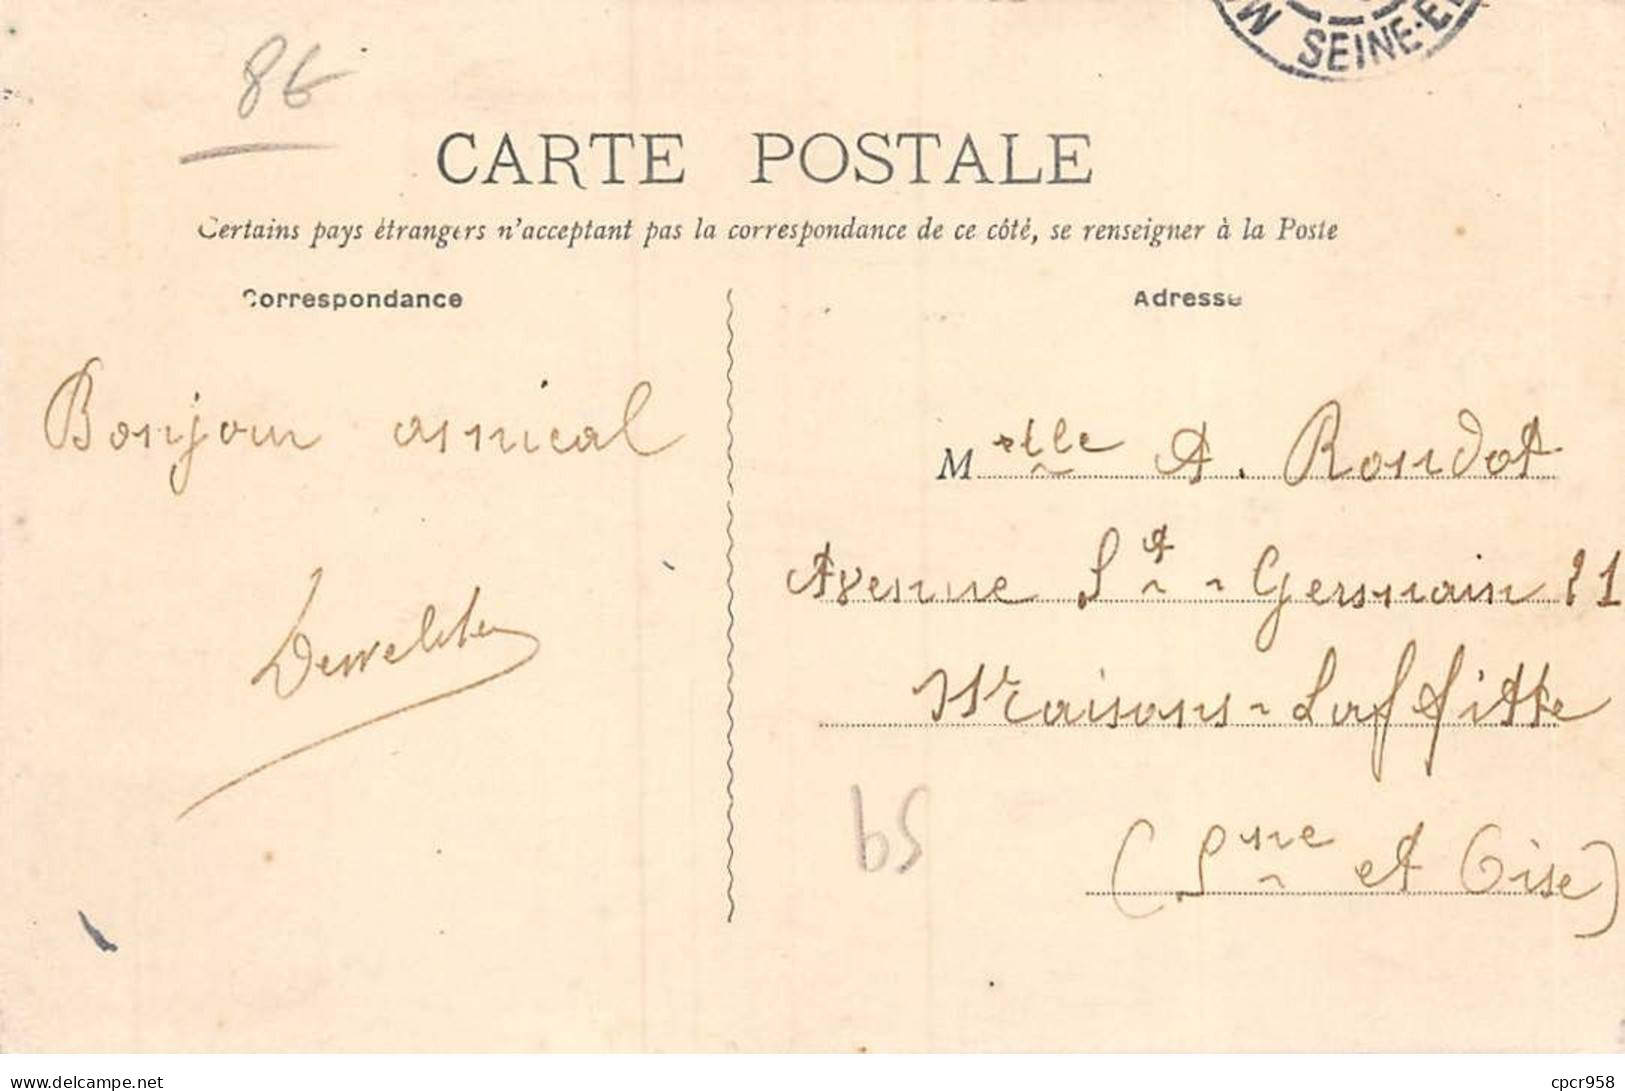 86
SEINE-E
CARTE POSTALE
Certains pays étrangers n'acceptant pas la correspondance de ce côté, se renseigner à la Poste
Correspondance
Adresse
Bonjour amical
Melle A. Rondot
Avenue St - Germain 21
Maisons-Laffitte
(Sne et Oise)
bS
www.delcampe.net
cpcr958